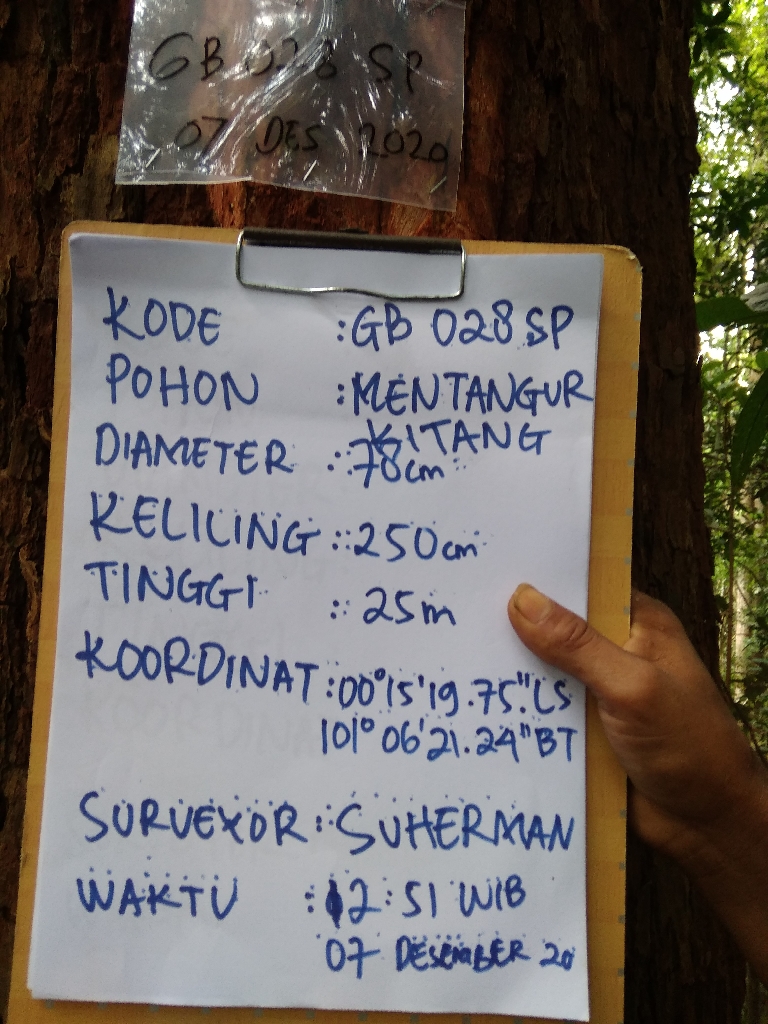 GB 028 SP
07 DES 2020
KODE : GB 028 SP
POHON : MENTANGUR
KITANG
DIAMETER : 78cm
KELILING : 250cm
TINGGI : 25m
KOORDINAT : 00°15'19.75" LS
101° 06'21.24" BT
SURVEYOR : SUHERMAN
WAKTU : 12:51 WIB
07 DESEMBER 20